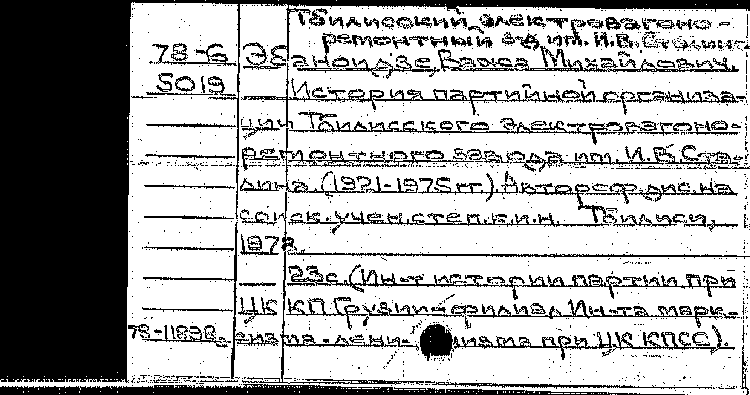 Тбилисский электровагоно-
ремонтный з-д им. И.В. Сталина
78-6 Эбаноидзе, Важа Михайлович.
5019 История партийной организа-
ции Тбилисского электровагоно-
ремонтного завода им. И.В. Ста-
лина. (1921-1975 гг.). Автореф. дис. на
соиск. учен. степ. к.и.н. Тбилиси,
1978.
23с. (Ин-т истории партии при
ЦК КП Грузии-филиал Ин-та марк-
78-11898 сизма-лени- низма при ЦК КПСС).